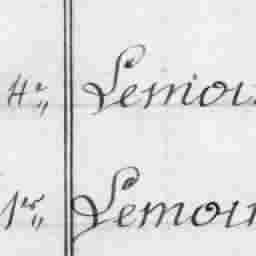 4e,, Lemoi
1er,, Lemoin